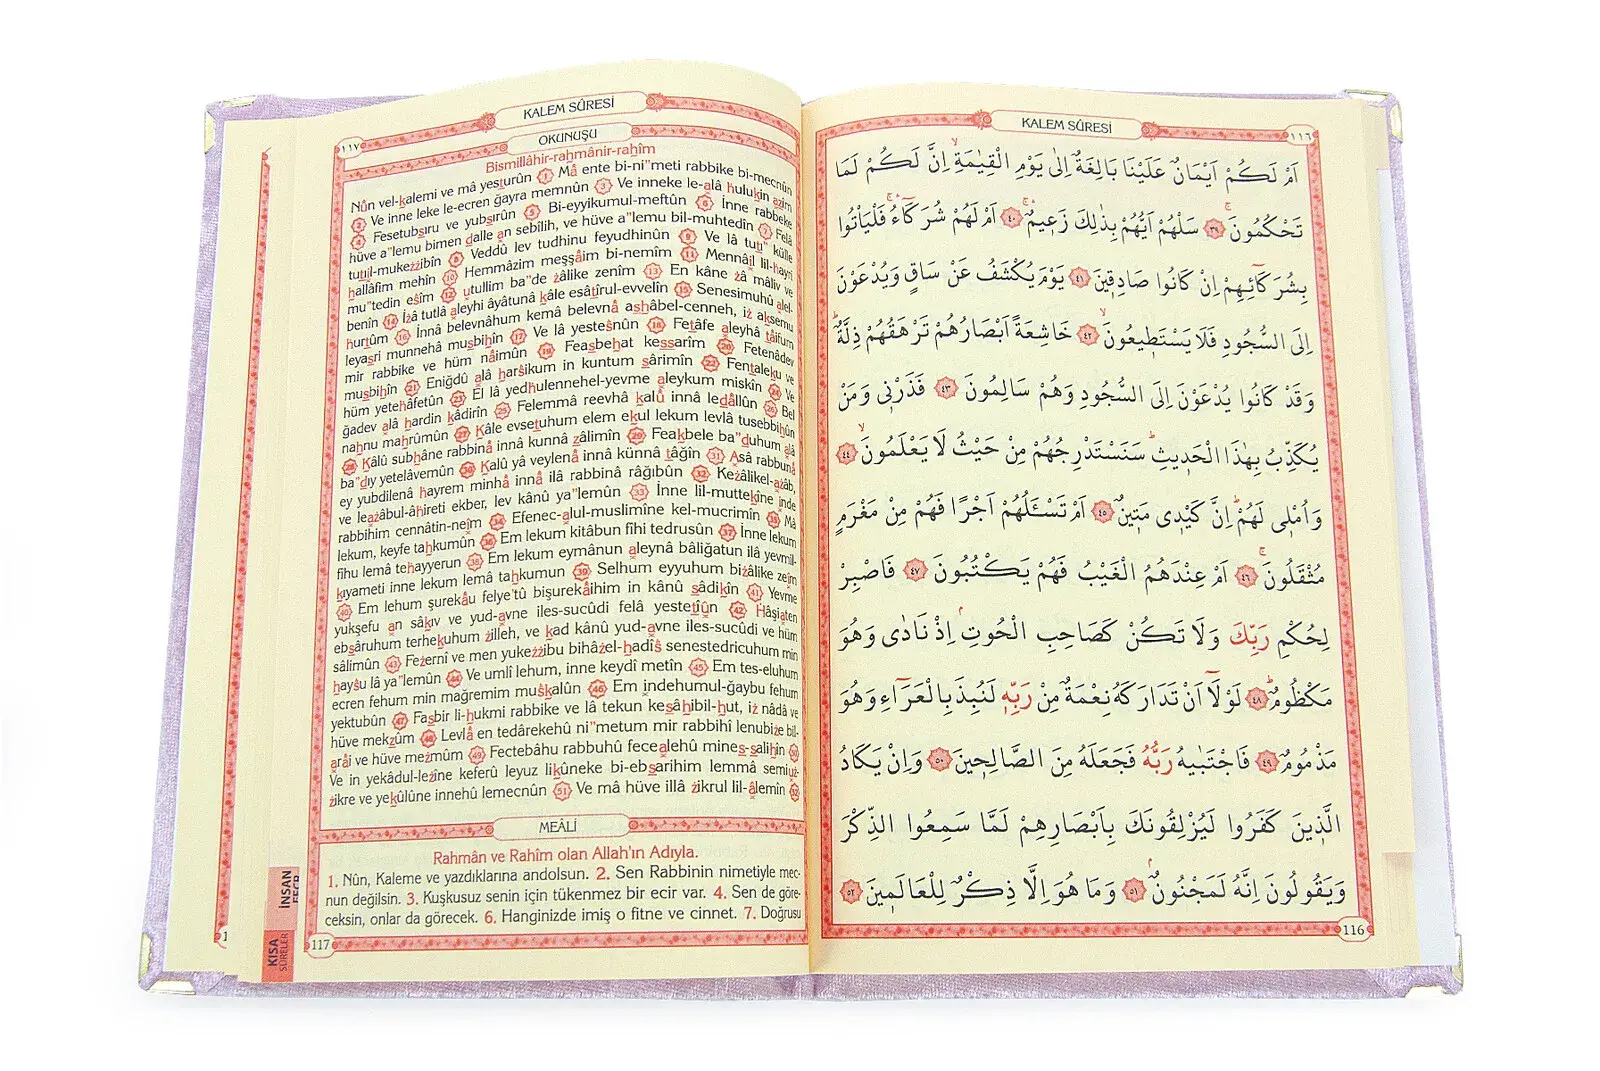 KALEM SÛRESİ
١١٦
اَمْ لَكُمْ اَيْمَانٌ عَلَيْنَا بَالِغَةٌ اِلٰى يَوْمِ الْقِيٰمَةِۙ اِنَّ لَكُمْ لَمَا
تَحْكُمُونَۚ ﴿٣٩﴾ سَلْهُمْ اَيُّهُمْ بِذٰلِكَ زَعٖيمٌۚ ﴿٤٠﴾ اَمْ لَهُمْ شُرَكَٓاءُۚ فَلْيَأْتُوا
بِشُرَكَٓائِهِمْ اِنْ كَانُوا صَادِقٖينَ ﴿٤١﴾ يَوْمَ يُكْشَفُ عَنْ سَاقٍ وَيُدْعَوْنَ
اِلَى السُّجُودِ فَلَا يَسْتَطٖيعُونَۙ ﴿٤٢﴾ خَاشِعَةً اَبْصَارُهُمْ تَرْهَقُهُمْ ذِلَّةٌؕ
وَقَدْ كَانُوا يُدْعَوْنَ اِلَى السُّجُودِ وَهُمْ سَالِمُونَ ﴿٤٣﴾ فَذَرْنٖى وَمَنْ
يُكَذِّبُ بِهٰذَا الْحَدٖيثِؕ سَنَسْتَدْرِجُهُمْ مِنْ حَيْثُ لَا يَعْلَمُونَۙ ﴿٤٤﴾
وَاُمْلٖى لَهُمْؕ اِنَّ كَيْدٖى مَتٖينٌ ﴿٤٥﴾ اَمْ تَسْـَٔلُهُمْ اَجْرًا فَهُمْ مِنْ مَغْرَمٍ
مُثْقَلُونَۚ ﴿٤٦﴾ اَمْ عِنْدَهُمُ الْغَيْبُ فَهُمْ يَكْتُبُونَ ﴿٤٧﴾ فَاصْبِرْ
لِحُكْمِ رَبِّكَ وَلَا تَكُنْ كَصَاحِبِ الْحُوتِۘ اِذْ نَادٰى وَهُوَ
مَكْظُومٌؕ ﴿٤٨﴾ لَوْلَٓا اَنْ تَدَارَكَهُ نِعْمَةٌ مِنْ رَبِّهٖ لَنُبِذَ بِالْعَرَٓاءِ وَهُوَ
مَذْمُومٌ ﴿٤٩﴾ فَاجْتَبٰيهُ رَبُّهُ فَجَعَلَهُ مِنَ الصَّالِحٖينَ ﴿٥٠﴾ وَاِنْ يَكَادُ
الَّذٖينَ كَفَرُوا لَيُزْلِقُونَكَ بِاَبْصَارِهِمْ لَمَّا سَمِعُوا الذِّكْرَ
وَيَقُولُونَ اِنَّهُ لَمَجْنُونٌۘ ﴿٥١﴾ وَمَا هُوَ اِلَّا ذِكْرٌ لِلْعَالَمٖينَ ﴿٥٢﴾
116
KALEM SÛRESİ
١١٧
OKUNUŞU
Bismillâhir-rahmânir-rahîm
Nûn vel-kalemi ve mâ yesturûn 1 Mâ ente bi-ni"meti rabbike bi-mecnûn
2 Ve inne leke le-ecren ğayra memnûn 3 Ve inneke le-alâ hulukin azîm
4 Fesetubsıru ve yubsırûn 5 Bi-eyyikumul-meftûn 6 İnne rabbeke
hüve a"lemu bimen dalle an sebîlih, ve hüve a"lemu bil-muhtedîn 7 Felâ
tutııl-mukezzibîn 8 Veddû lev tudhinu feyudhinûn 9 Ve lâ tutı" külle
hallâfim mehîn 10 Hemmâzim meşşâim bi-nemîm 11 Mennâil lil-hayri
mu"tedin esîm 12 utullim ba"de zâlike zenîm 13 En kâne zâ mâliv ve
benîn 14 İzâ tutlâ aleyhi âyâtunâ kâle esâtîrul-evvelîn 15 Senesimuhû alel-
hurtûm 16 İnnâ belevnâhum kemâ belevnâ ashâbel-cenneh, iz aksemu
leyasri munnehâ musbihîn 17 Ve lâ yestesnûn 18 Fetâfe aleyhâ tâifum
mir rabbike ve hüm nâimûn 19 Feasbehat kessarîm 20 Fetenâdev
musbihîn 21 Eniğdû alâ harsikum in kuntum sârimîn 22 Fentaleku ve
hüm yetehâfetûn 23 El lâ yedhulennehel-yevme aleykum miskîn 24 Ve
ğadev alâ hardin kâdirîn 25 Felemmâ reevhâ kalû innâ ledâllûn 26 Bel
nahnu mahrûmûn 27 Kâle evsetuhum elem ekul lekum levlâ tusebbihûn
28 Kâlû subhâne rabbinâ innâ kunnâ zâlimîn 29 Feakbele ba"duhum alâ
ba"dıy yetelâvemûn 30 Kalû yâ veylenâ innâ künnâ tâğîn 31 Asâ rabbunâ
ey yubdilenâ hayrem minhâ innâ ilâ rabbinâ râğıbûn 32 Kezâlikel-azâb,
ve leazâbul-âhireti ekber, lev kânû ya"lemûn 33 İnne lil-muttekîne inde
rabbihim cennâtin-neîm 34 Efenec-alul-muslimîne kel-mucrimîn 35 Mâ
lekum, keyfe tahkumûn 36 Em lekum kitâbun fîhi tedrusûn 37 İnne lekum
fîhu lemâ tehayyerun 38 Em lekum eymânun aleyna bâliğatun ilâ yevmil-
kıyameti inne lekum lemâ tahkumun 39 Selhum eyyuhum bizâlike zeîm
40 Em lehum şurekâu felye'tû bişurekâihim in kânû sâdikîn 41 Yevme
yukşefu an sâkıv ve yud-avne iles-sucûdi felâ yestetîûn 42 Hâşiaten
ebsâruhum terhekuhum zilleh, ve kad kânû yud-avne iles-sucûdi ve hüm
sâlimûn 43 Fezernî ve men yukezzibu bihâzel-hadîs senestedricuhum min
haysu lâ ya"lemûn 44 Ve umlî lehum, inne keydî metîn 45 Em tes-eluhum
ecren fehum min mağremim muskalûn 46 Em indehumul-ğaybu fehum
yektubûn 47 Fasbir li-hukmi rabbike ve lâ tekun kesâhibil-hut, iz nâdâ ve
hüve mekzûm 48 Levlâ en tedârekehû ni"metum mir rabbihî lenubize bil-
arâi ve hüve mezmûm 49 Fectebâhu rabbuhû fecealehû mines-salihîn 50
Ve in yekâdul-lezîne keferû leyuz likûneke bi-ebsarihim lemmâ semiuz-
zikre ve yekûlûne innehû lemecnûn 51 Ve mâ hüve illâ zikrul lil-âlemin 52
MEÂLİ
Rahmân ve Rahîm olan Allah'ın Adıyla.
1. Nûn, Kaleme ve yazdıklarına andolsun. 2. Sen Rabbinin nimetiyle mec-
nun değilsin. 3. Kuşkusuz senin için tükenmez bir ecir var. 4. Sen de göre-
ceksin, onlar da görecek. 6. Hanginizde imiş o fitne ve cinnet. 7. Doğrusu
117
İNSAN
KISA
SÛRELER